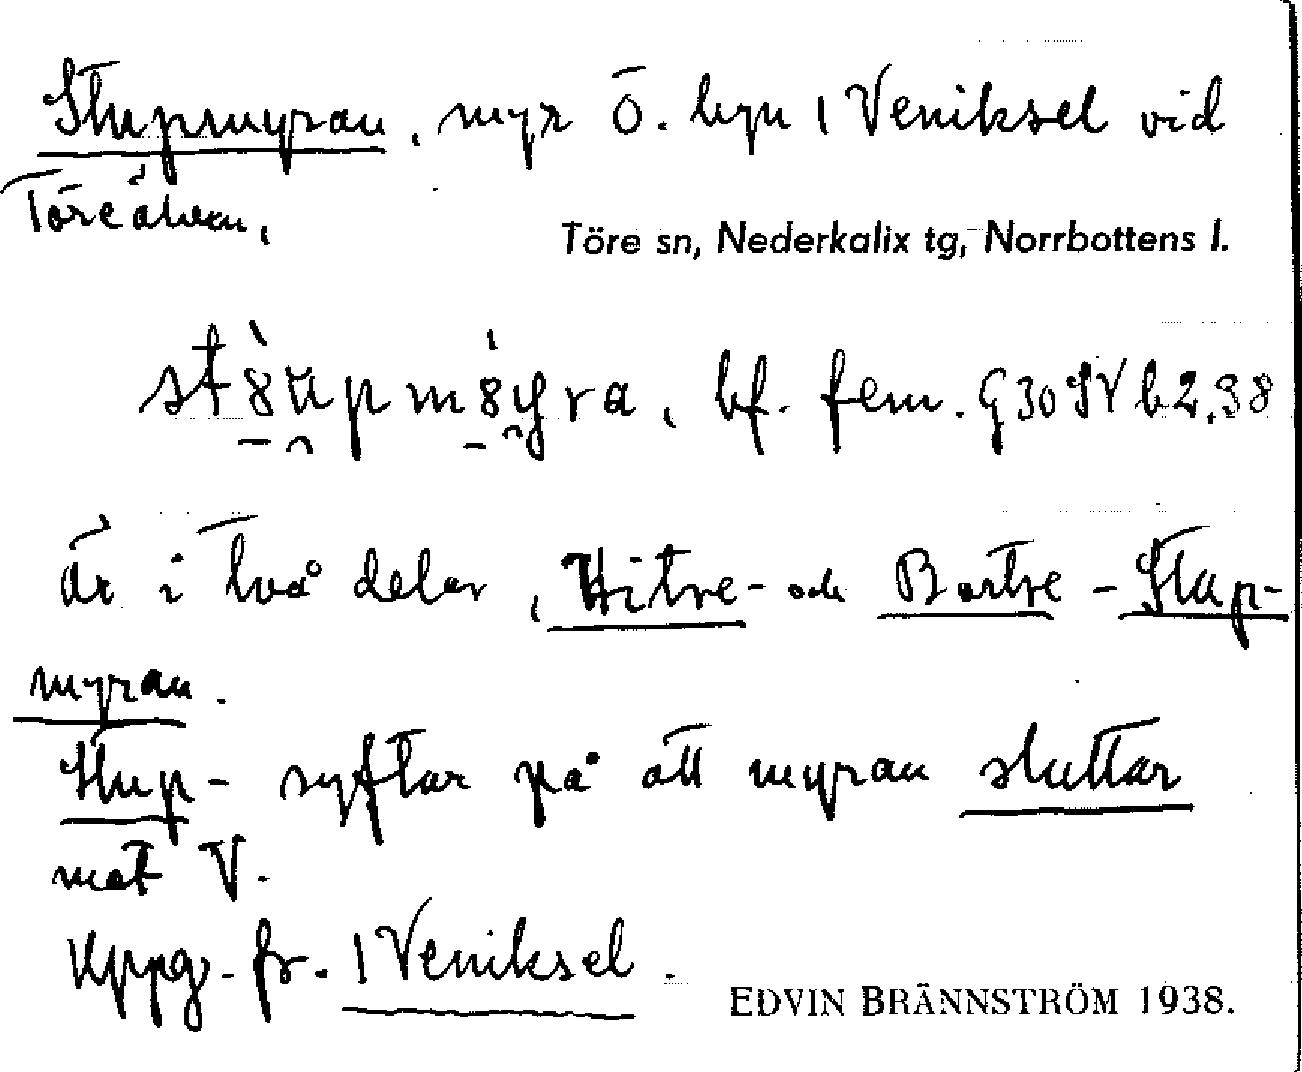 Stupmyran, myr ö. byn 1 Veniksel vid
Töreälven,
Töre sn, Nederkalix tg, Norrbottens l.
bf. fem.
är i två delar, Hitre- och Bortre-Stup-
myran.
Stup- syftar på att myran sluttar
mot V.
Uppg. fr. 1 Veniksel.
EDVIN BRÄNNSTRÖM 1938.